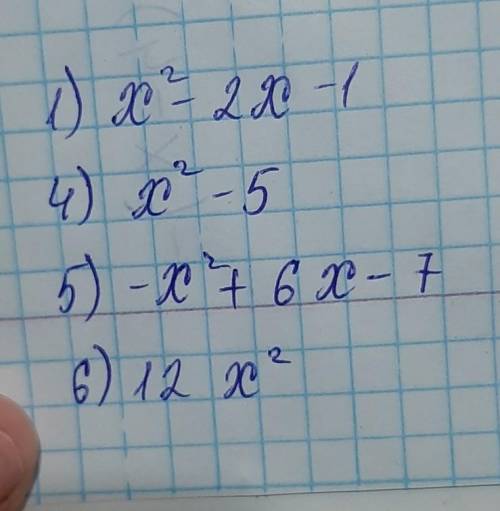 1) x² - 2x - 1
4) x² - 5
5) -x² + 6x - 7
6) 12 x²